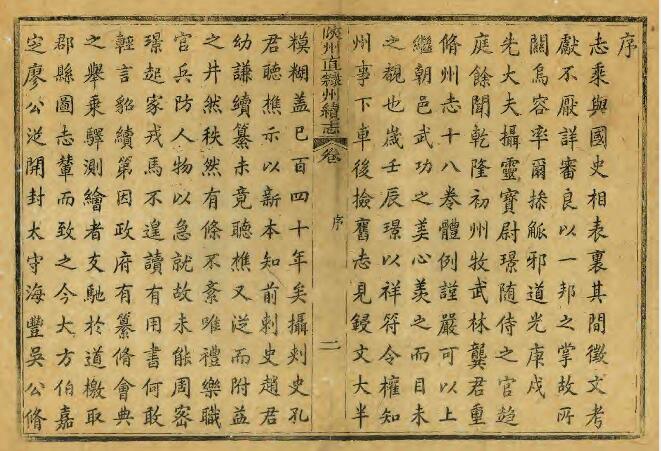 序
志乘與國史相表裏其間徵文考
獻不厭詳審良以一邦之掌故所
關烏容率爾操觚邪道光庚戌
先大夫攝靈寶尉璟随侍之官趋
庭餘聞乾隆初州牧武林龔君重
脩州志十八卷體例謹嚴可以上
繼朝邑武功之美心羡之而目未
之覩也歲壬辰璟以祥符令權知
州事下車後撿舊志見鋟文大半
陝州直隸州續志
卷
序
二
模糊盖已百四十年矣攝刺史孔
君聴樵示以新本知前刺史趙君
幼謙續纂未竟聴樵又從而附益
之井然秩然有條不紊唯禮樂職
官兵防人物以急就故未能周密
璟起家戎馬不遑讀有用書何敢
輕言貂續第因政府有纂脩會典
之舉乗驛測繪者交馳於道檄取
郡縣圖志輦而致之今大方伯嘉
定廖公從開封太守海豐吳公脩